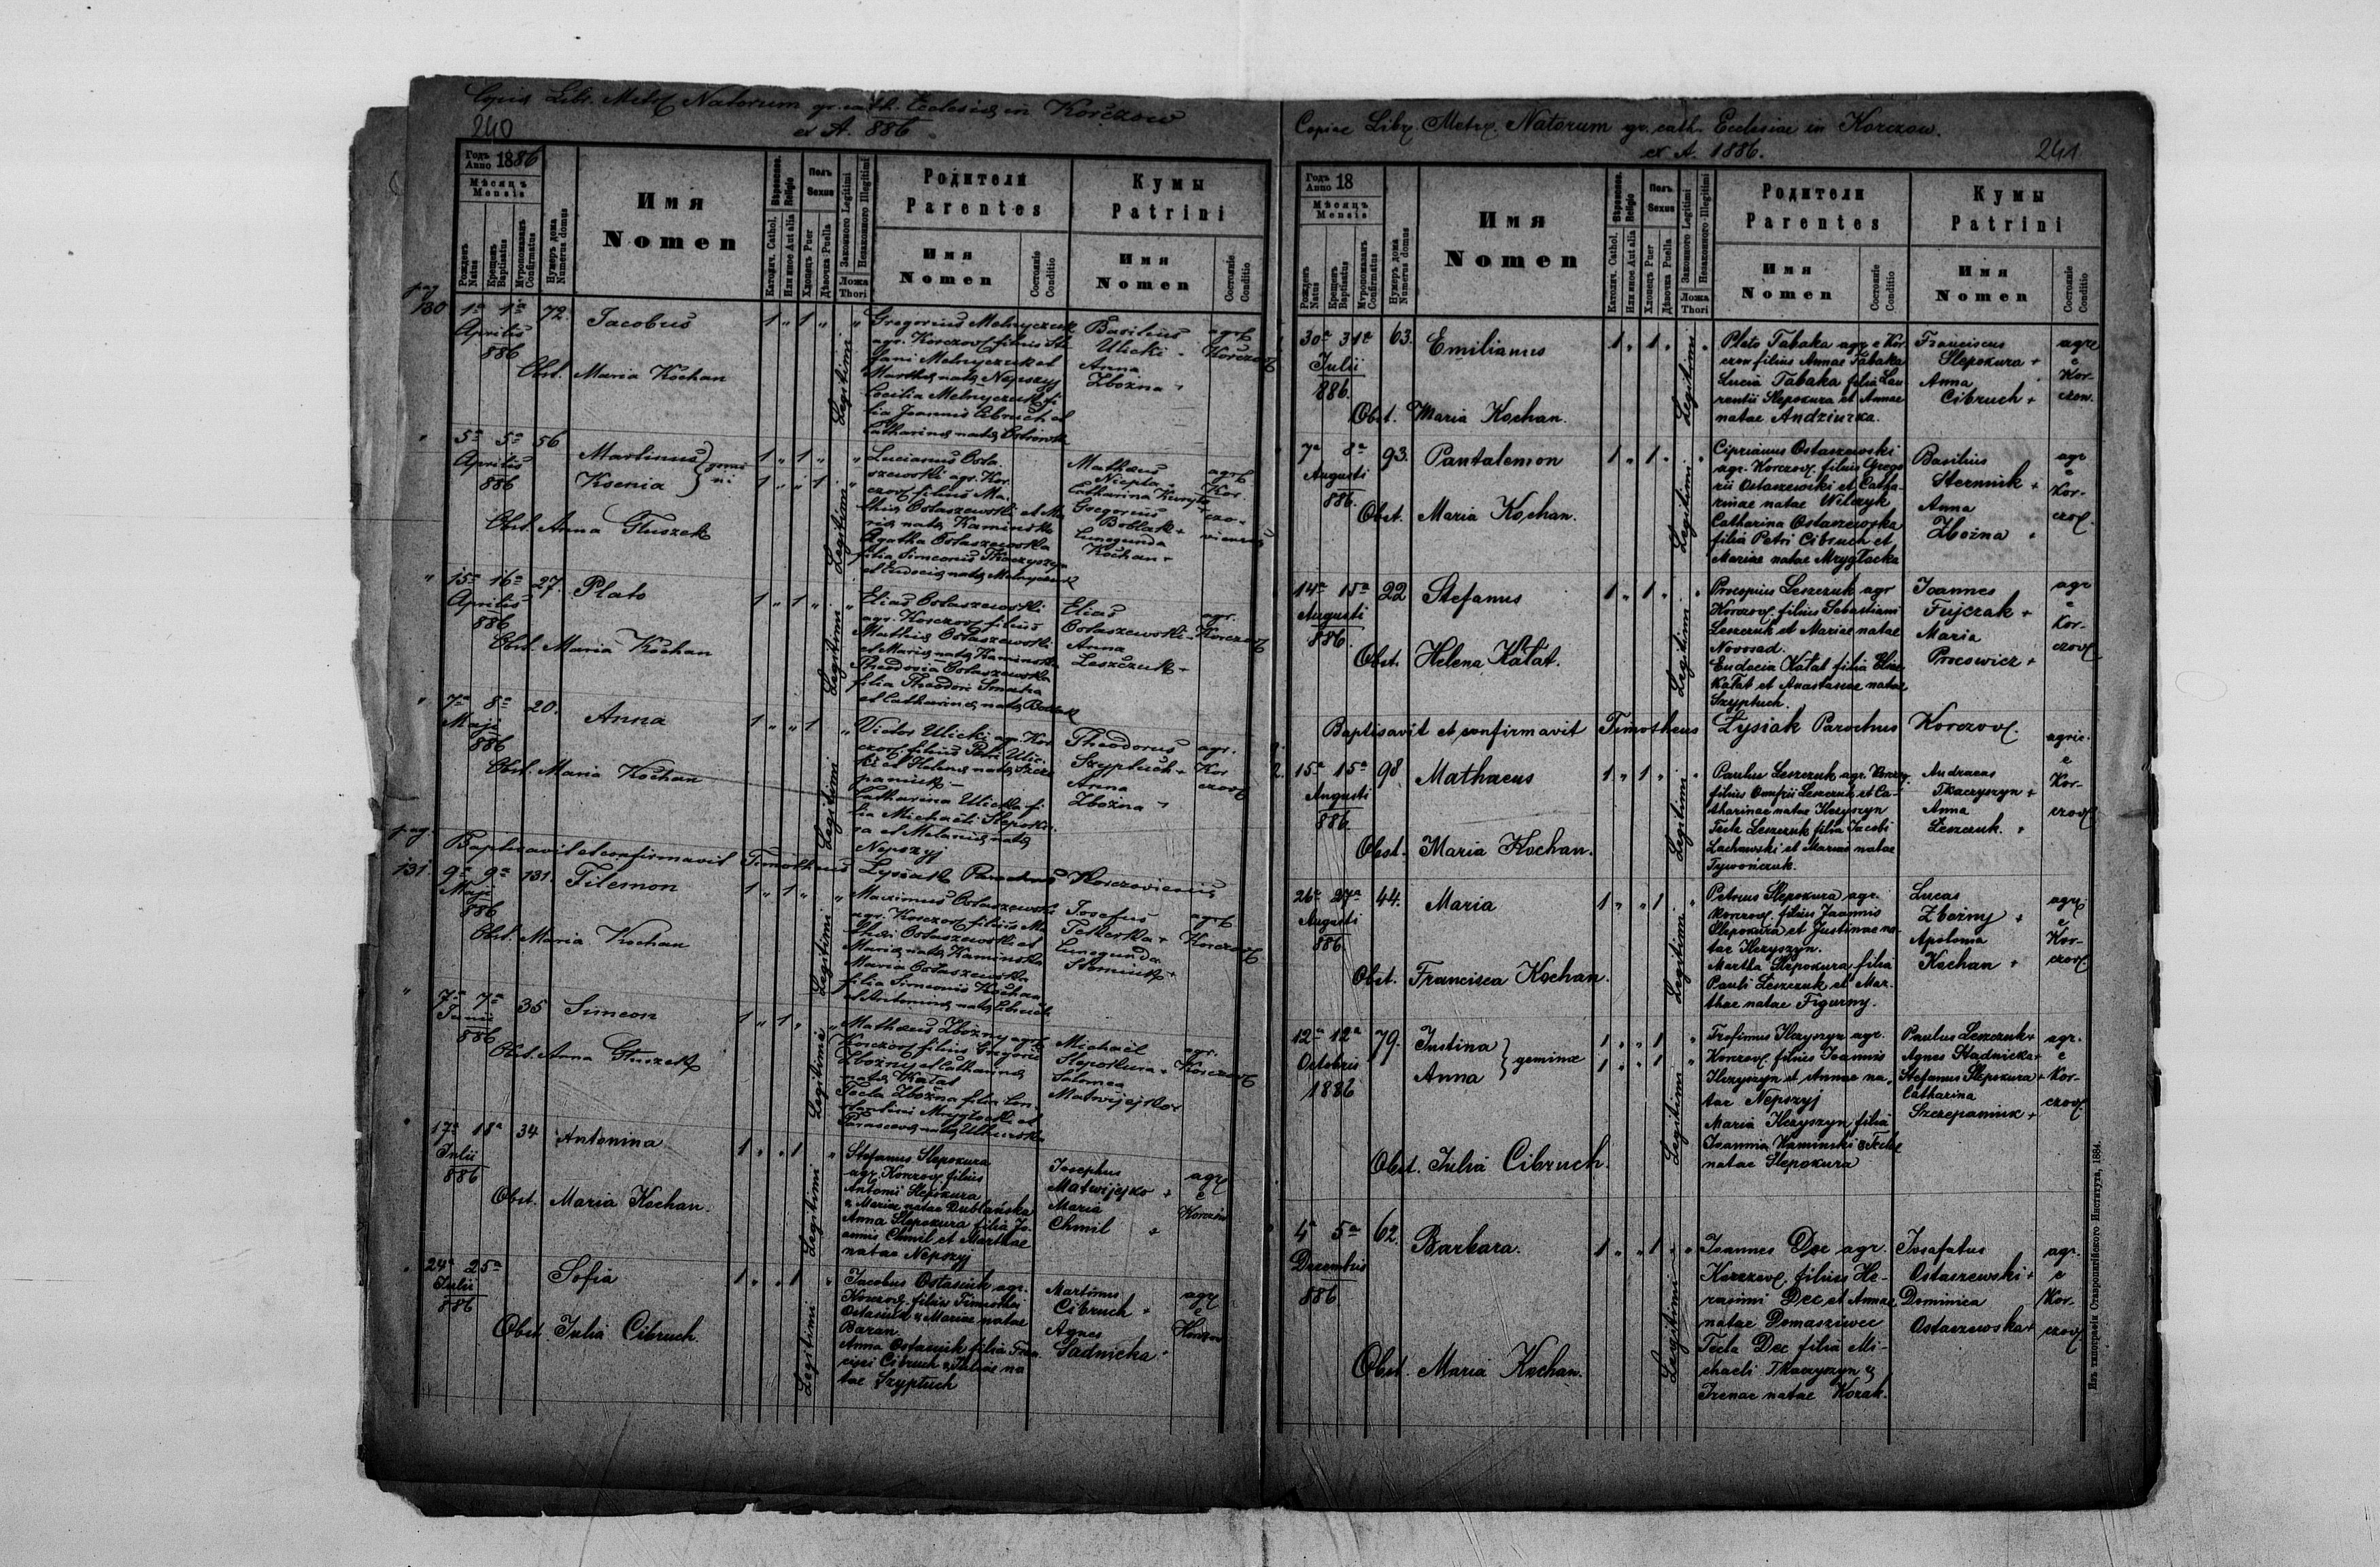 Copia Libr. Metr. Natorum gr. cath. Ecclesiae in Korczow
ex A. 886.
240
Годъ Anno 1886
Мѣсяцъ Mensis
Рожденъ Natus
Крещенъ Baptisatus
Мѵропомазанъ Confirmatus
Нумеръ дома Numerus domus
Имя
Nomen
Вѣроиспов. Religio
Католич. Cathol.
Или иное Aut alia
Полъ Sexus
Хлопецъ Puer
Дѣвочка Puella
Законного Legitimi
Незаконного Illegitimi
Ложа Thori
Родители
Parentes
Имя
Nomen
Состояніе Conditio
Кумы
Patrini
Имя
Nomen
Состояніе Conditio
pag
130
1a 1a 72. Jacobus 1 „ 1 „
Aprilis
886
Obst. Maria Kochan
Legitimi
Gregorius Melnyczuk
agr. Korczov. filius Ste
fani Melnyczuk et
Martha nata Nepszyj
Cecilia Melnyczuk fi
lia Joannis Cibruch et
Catharina nata Ostrowska
Basilius
Ulicki
Anna
Zbożna
agr.
Korczov
5a 5a 56 Martinus } gemi
Aprilis Ksenia } ni
886
Obst. Anna Gluszek
Legitimi
Lucianus Osta
szewski agr. Kor
czov. filius Ma
thia Ostaszewski et Ma
ria nata Kaminska
Agatha Ostaszewska
filia Simeonis Tkaczyszyn
et Eudocia nata Melnyczuk
Mathaeus
Niepla
Gregorius
Boblak +
Cunegunda
Kochan +
15a 16a 27. Plato 1 „ 1 „
Aprilis
886
Obst. Maria Kochan
Legitimi
Elias Ostaszewski
agr. Korczov. filius
Mathia Ostaszewski
et Maria nata Kaminska
Theodosia Ostaszewska
filia Theodori Smaha
et Catharina nata Boblak
Elias
Ostaszewski
Anna
Leszczuk
agr.
Korczov
7a 8a 20. Anna 1 „ „ 1
Maji
886
Obst. Maria Kochan
Legitimi
Victor Ulicki agr. Kor
czov. filius Petri Ulic
ki et Helena nata Szcze
paniuk
Catharina Ulicka fi
lia Michaeli Slepoku
ra et Melania nata
Nepszyj
Theodorus
Szyptuch +
Anna
Zbożna
agr.
Kor
czov
pag.
Baptisavit et confirmavit Timotheus Lysiak Parochus Korczoviensis
131
9a 9a 131. Filemon 1 „ 1 „
Maji
886
Obst. Maria Kochan
Legitimi
Maximus Ostaszewski
agr. Korczov. filius Ma
thei Ostaszewski et
Maria nata Kaminska
Maria Ostaszewska
filia Simeonis Kochan
et Antonina nata Cibruch
Josefus
Teterka +
Cunegunda
Sterniuk +
agr.
Korczov
7a 7a 35 Simeon 1 „ 1 „
Junii
886
Obst. Anna Gluszek
Legitimi
Mathaeus Zbożny agr.
Korczov filius Gregorii
Zbożny et Catharina
nata Kałat
Tecla Zbożna filia Con
stantini Mrygłocki et
Parascevia nata Ulhurska
Michael
Slepokura +
Salomea
Matwijejko +
agr.
Korczov
17a 18a 34 Antonina 1 „ „ 1
Julii
886
Obst. Maria Kochan.
Legitimi
Stefanus Slepokura
agr. Korczov. filius
Antonii Slepokura
& Mariae natae Dublańska
Anna Slepokura filia Jo-
annis Chmil et Marthae
natae Nepszyj
Josephus
Matwijejko +
Maria
Chmil +
agr.
e
Korczów
24a 25a Sofia 1 „ „ 1
Julii
886
Obst. Julia Cibruch.
Legitimi
Jacobus Ostasiuk agr.
Korczov. filius Timothei
Ostasiuk & Mariae natae
Baran
Anna Ostasiuk filia Fran
cisci Cibruch & Juliae na
tae Szyptuch
Martinus
Cibruch +
Agnes
Sadnicka
agr.
e
Korczov
Copiae Libr. Metr. Natorum gr. cath. Ecclesiae in Korczow.
ex A. 1886.
241
Годъ Anno 18
Мѣсяцъ Mensis
Рожденъ Natus
Крещенъ Baptisatus
Мѵропомазанъ Confirmatus
Нумеръ дома Numerus domus
Имя
Nomen
Вѣроиспов. Religio
Католич. Cathol.
Или иное Aut alia
Полъ Sexus
Хлопецъ Puer
Дѣвочка Puella
Законного Legitimi
Незаконного Illegitimi
Ложа Thori
Родители
Parentes
Имя
Nomen
Состояніе Conditio
Кумы
Patrini
Имя
Nomen
Состояніе Conditio
30a 31a 63. Emilianus 1 „ 1 „
Julii
886.
Obst. Maria Kochan.
Legitimi
Plato Tabaka agr. e Kor
czow filius Annae Tabaka
Lucia Tabaka filia Lau
rentii Slepokura et Annae
natae Andziurka.
Franciscus
Slepokura +
Anna
Cibruch +
agr.
e
Kor-
czow.
7a 8a 93. Pantalemon 1 „ 1 „
Augusti
886.
Obst. Maria Kochan.
Legitimi
Ciprianus Ostaszewski
agr. Korczov. filius Grego
rii Ostaszewski et Catha-
rinae natae Wilczyk
Catharina Ostaszewska
filia Petri Cibruch et
Mariae natae Mrygłocka
Basilius
Sterniuk +
Anna
Zbożna +
agr
e
Kor-
czov.
14a 15a 22 Stefanus 1 „ 1 „
Augusti
886.
Obst. Helena Kałat.
Legitimi
Procopius Leszczuk agr
Korczov. filius Sebastiani
Leszczuk et Mariae natae
Novosad.
Eudocia Kałat filia Eliae
Kałat et Anastasiae natae
Szyptuch.
Joannes
Fujczak +
Maria
Procowicz +
agr
e
Kor-
czov
Baptisavit et confirmavit Timotheus Łysiak Parochus Korczov.
15a 15a 98 Mathaeus 1 „ 1 „
Augusti
886.
Obst. Maria Kochan.
Legitimi
Paulus Leszczuk agr. Korczov.
filius Onufrii Leszczuk et Ca-
tharinae natae Hryszyn
Tecla Leszczuk filia Jacobi
Lachowski et Mariae natae
Tywończuk.
Andraeas
Tkaczyszyn +
Anna
Leszczuk. +
agric.
e
Kor-
czov
26a 27a 44. Maria 1 „ „ 1
Augusti
886
Obst. Francisca Kochan.
Legitimi
Petrus Slepokura agr.
Korczov. filius Joannis
Slepokura et Justinae na-
tae Hryszyn.
Martha Slepokura filia
Pauli Leszczuk et Mar-
thae natae Figurny.
Lucas
Zbożny +
Apolonia
Kochan +
agr.
e
Kor-
czov.
12a 12a 79. Justina } geminae 1 „ „ 1
Octobris Anna } 1 „ „ 1
1886
Obst. Julia Cibruch.
Legitimi
Trofimus Hryszyn agr.
Korczov. filius Joannis
Hryszyn et Annae na-
tae Nepszyj
Maria Hryszyn filia
Joannis Kaminski & Teclae
natae Slepokura
Paulus Leszczuk +
Agnes Stadnicka +
Stefanus Slepokura +
Catharina
Szczepaniuk +
agr.
e
Kor-
czov
4a 5a 62. Barbara. 1 „ „ 1 „
Decembris
886
Obst. Maria Kochan.
Legitimi
Joannes Dec agr.
Korczov. filius He-
rasimi Dec et Annae
natae Domaszwec
Tecla Dec filia Mi-
chaeli Tkaczyszyn &
Irenae natae Kozak.
Josafatus
Ostaszewski +
Dominica
Ostaszewska +
agr.
e
Kor-
czov
Изъ типографіи Ставропигійского Института, 1884.